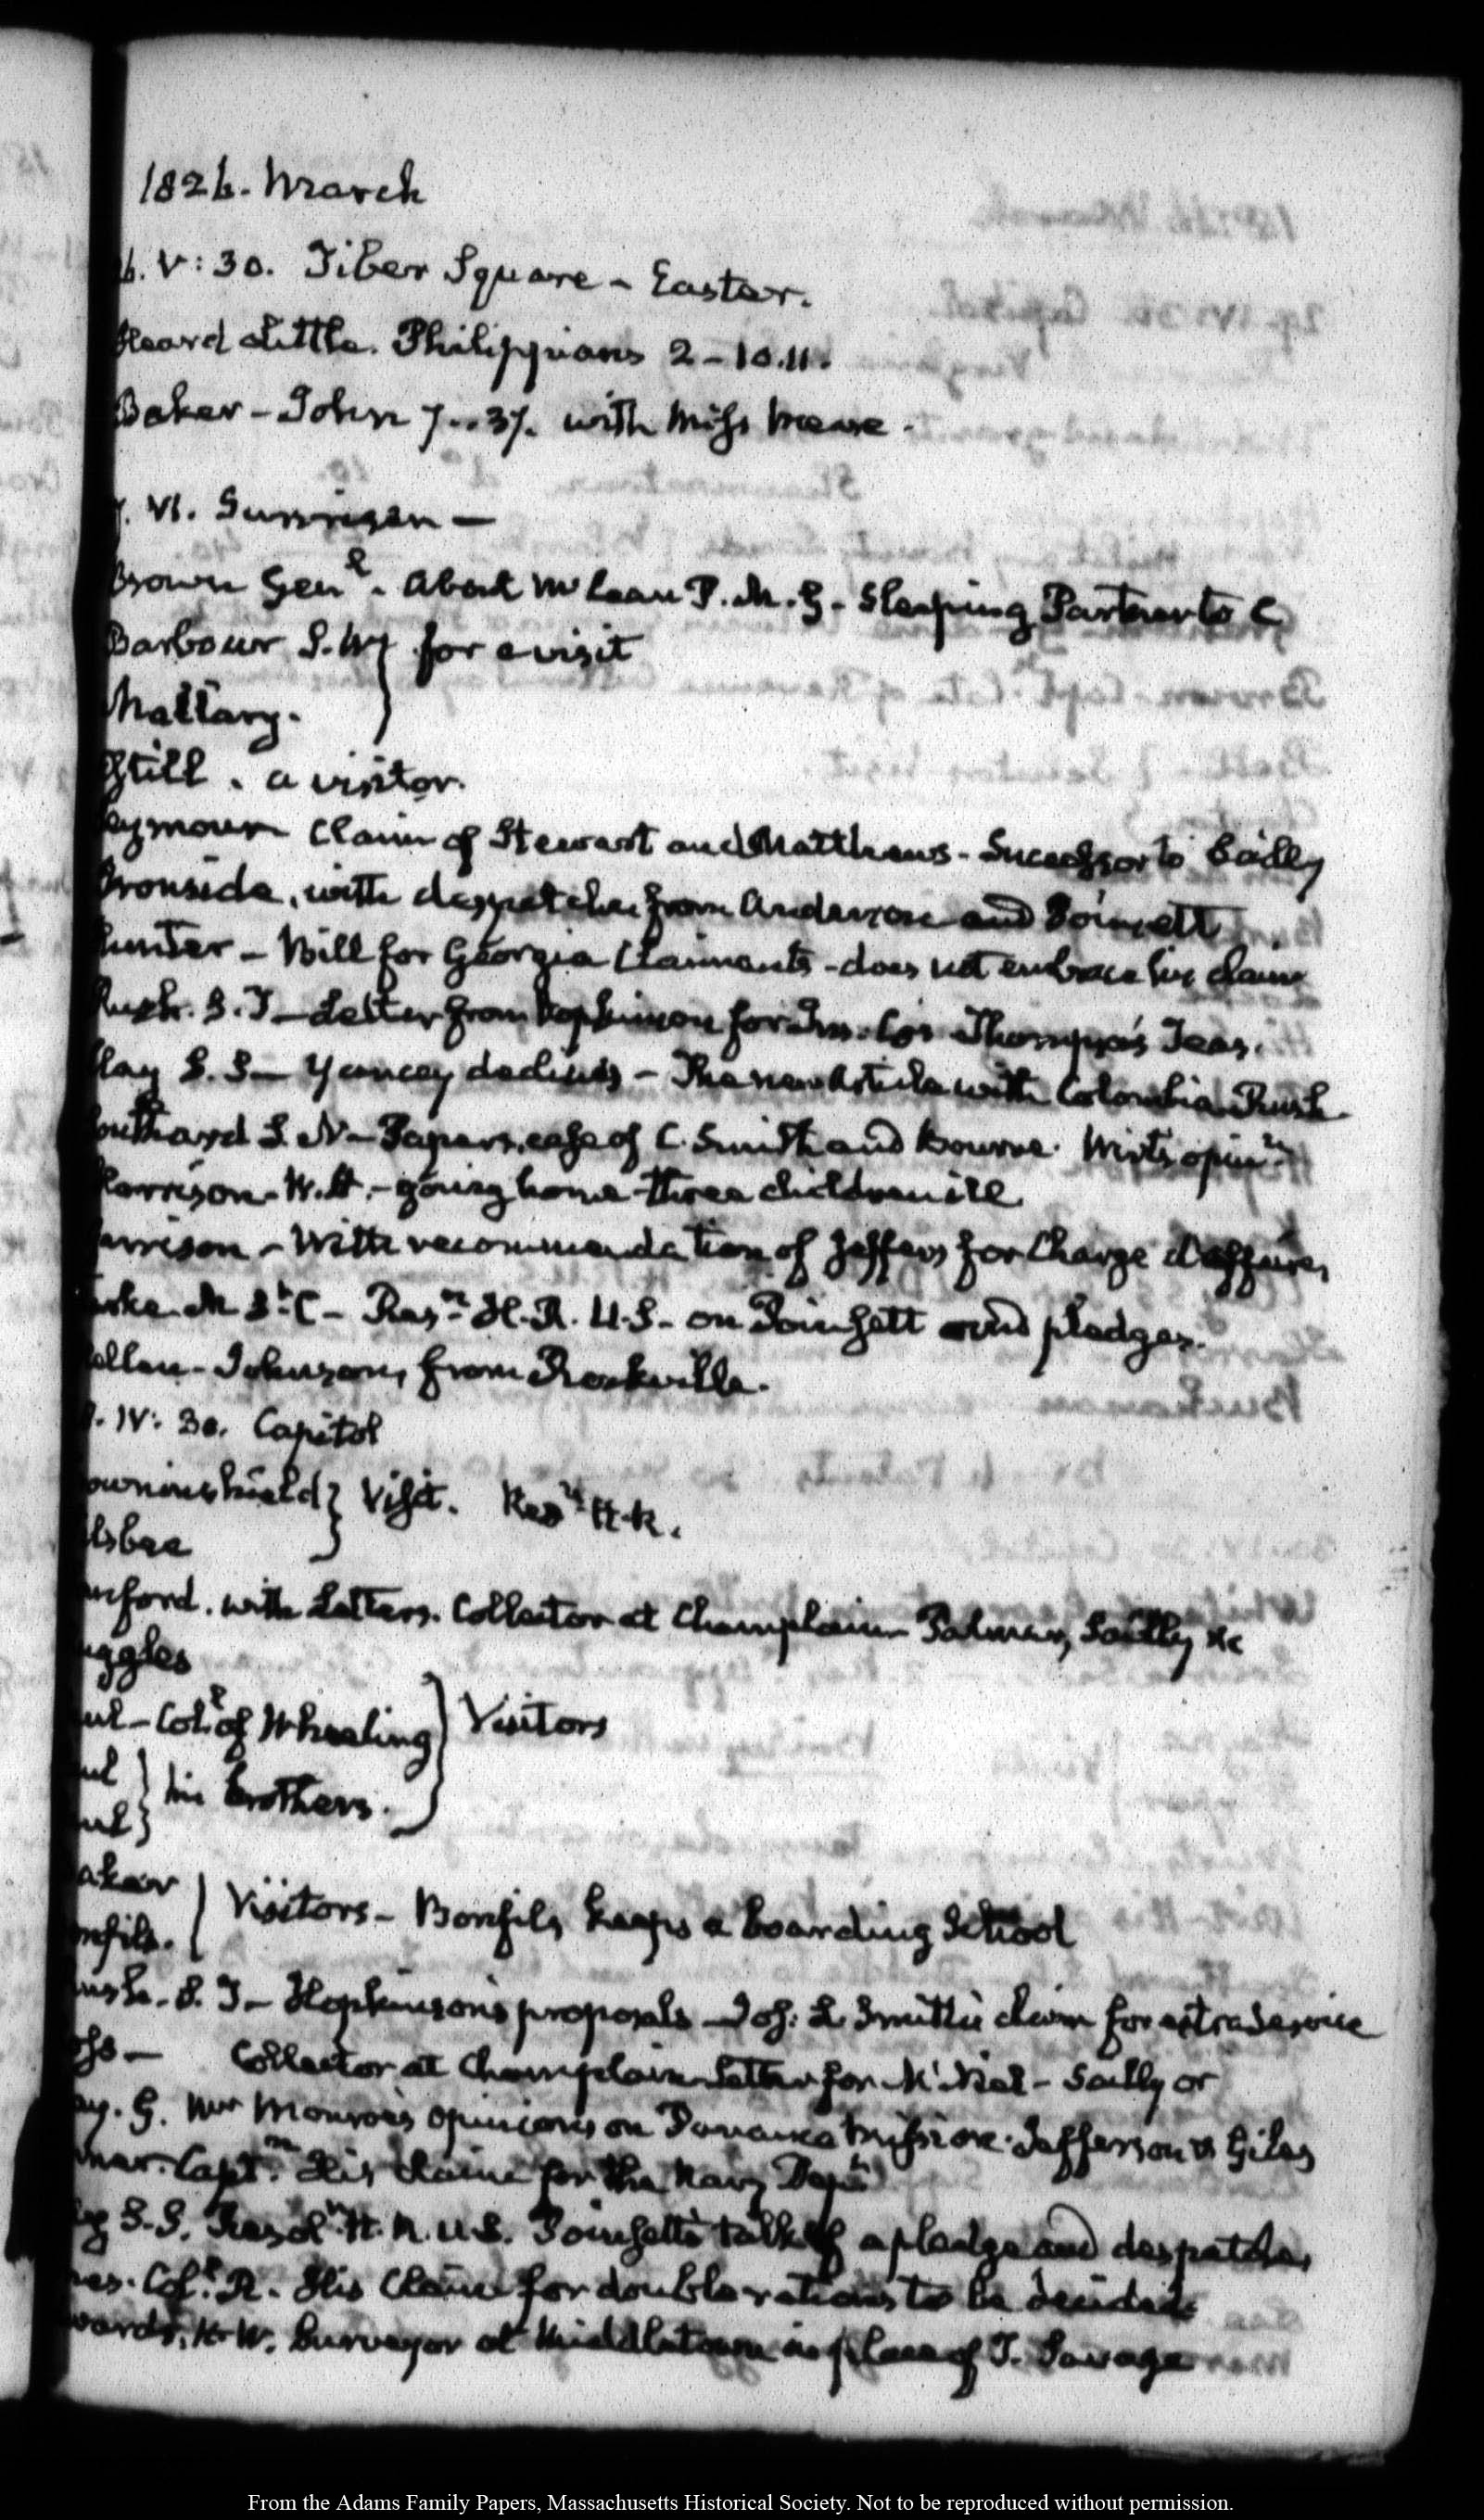 1826. March
6. V: 30. Tiber Square - Easter.
Heard Little. Philippians 2 - 10.11.
Baker - John 7..37. with Miss Mease.
7. VI. Sunrisen —
Brown Genl. - About McLean P.M.G - Sleeping Partner to C
Barbour S.W } for a visit
Mallary.
Still. a visitor.
eymour Claim of Stewart and Matthews - Successor to Bailly
Ironside, with despatches from Anderson and Poinsett
Hunter - Bill for Georgia Claimants - does not embrace his claim
Rush. S.T — Letter from Hopkinson for Thompson's Teas.
Clay S.S — Yancey declines - The new Article with Colombia. Rush
outhard S.N - Papers, case of C. Smith and Bourne. Wirt's opinn.
Harrison - W.H. - going home three children ill
arrison - With recommendation of Jeffers for Charge d'affaires
M St. C - Resn H.R. U.S - on Poinsett and pledges.
Johnson, from Rockville.
. IV: 30. Capitol
owninshield } Visit. Resn H.R.
lsbee
anford. with Letters. Collector at Champlain Palmer, Sailly &c
uggles
ul - Coll. of Wheeling } Visitors
ul } his brothers.
ul }
aker } Visitors - Bonfils keeps a boarding School
nfils.
ush. S.T - Hopkinson's proposals - Jos: L. Smith's claim for extra service
Collector at Champlain Letter for - Sailly or
ay. G. Mr Monroe's opinions on Panama Mission. Jefferson & Giles
Capt. His claim for the Navy Dept
ay S.S. Resoln H.R. U.S. Poinsett's talk of a pledge and despatches
Coll. R. His Claim for double rations to be decided
wards, Surveyor at Middletown in place of J. Savage
From the Adams Family Papers, Massachusetts Historical Society. Not to be reproduced without permission.